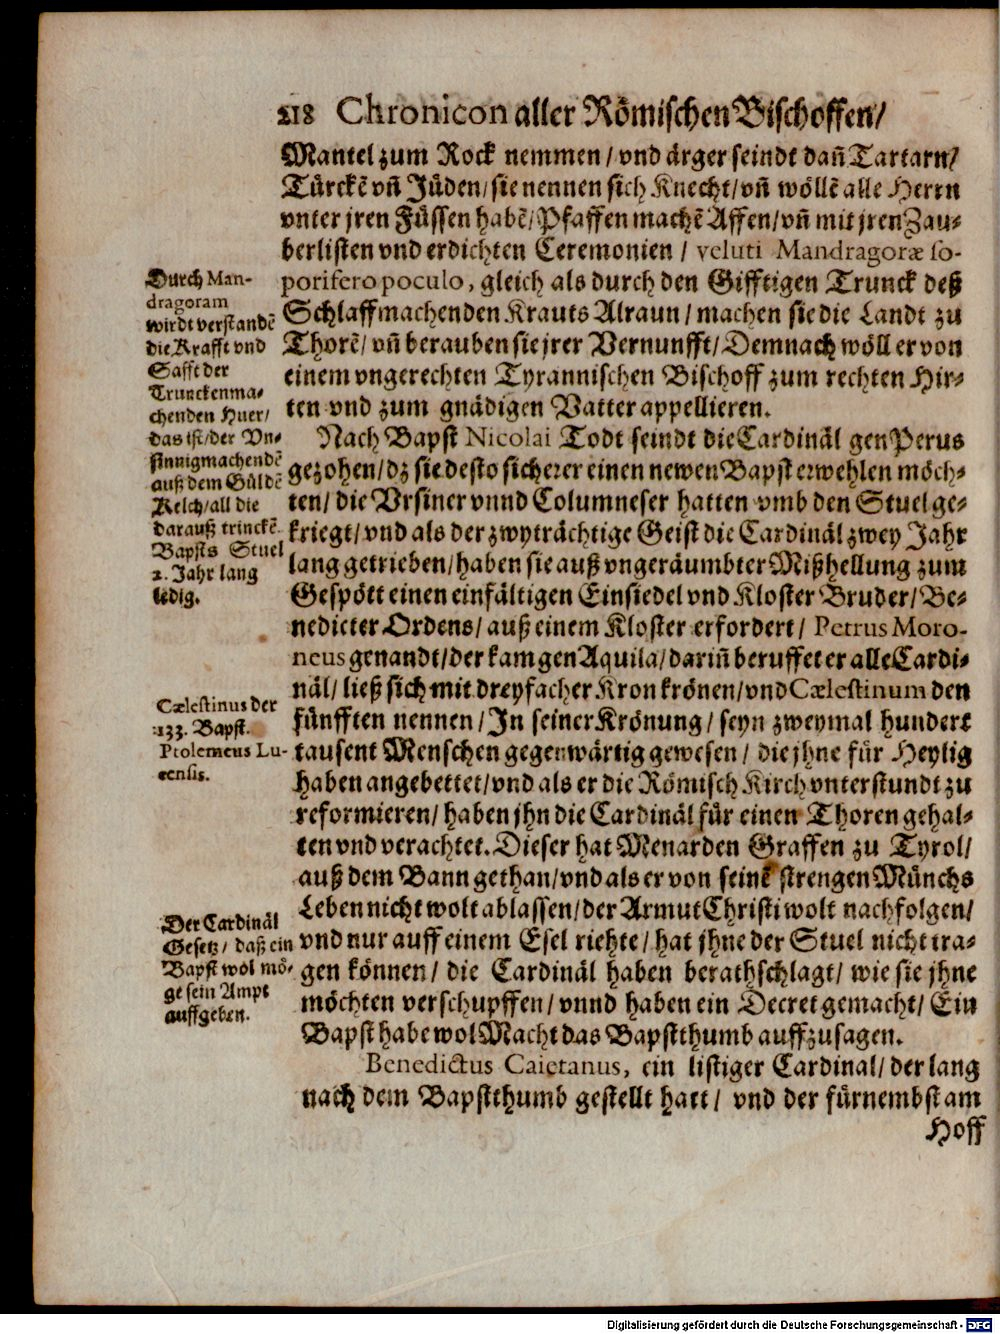 218 Chronicon aller Römischen Bischoffen/
Mantel zum Rock nemmen/ vnd ärger seindt dañ Tartarn/
Türckẽ vñ Jüden/ sie nennen sich Knecht/ vñ wöllẽ alle Herrn
vnter jren Füssen habẽ/ Pfaffen machẽ Affen/ vñ mit jren Zau-
berlisten vnd erdichten Ceremonien / veluti Mandragoræ so-
porifero poculo, gleich als durch den Gifftigen Trunck deß
Schlaffmachenden Krauts Alraun / machen sie die Landt zu
Thorẽ/ vñ berauben sie jrer Vernunfft/ Demnach wöll er von
einem vngerechten Tyrannischen Bischoff zum rechten Hir-
ten vnd zum gnädigen Vatter appellieren.
Nach Bapst Nicolai Todt seindt die Cardinäl gen Perus
gezohen/ dz sie desto sicherer einen newen Bapst erwehlen möch-
ten/ die Vrsiner vnnd Columneser hatten vmb den Stuel ge-
kriegt/ vnd als der zwyträchtige Geist die Cardinäl zwey Jahr
lang getrieben/ haben sie auß vngeräumbter Mißhellung zum
Gespött einen einfältigen Einsiedel vnd Kloster Bruder/ Be-
nedicter Ordens/ auß einem Kloster erfordert/ Petrus Moro-
neus genandt/ der kam gen Aquila/ dariñ beruffet er alle Cardi-
näl/ ließ sich mit dreyfacher Kron krönen/ vnd Cælestinum den
fünfften nennen/ In seiner Krönung/ seyn zweymal hundert
tausent Menschen gegenwärtig gewesen/ die jhne für Heylig
haben angebettet/ vnd als er die Römisch Kirch vnterstundt zu
reformieren/ haben jhn die Cardinäl für einen Thoren gehal-
ten vnd verachtet. Dieser hat Menarden Graffen zu Tyrol/
auß dem Bann gethan/ vnd als er von seinẽ strengen Münchs
Leben nicht wolt ablassen/ der Armut Christi wolt nachfolgen/
vnd nur auff einem Esel riehte/ hat jhne der Stuel nicht tra-
gen können/ die Cardinäl haben berathschlagt/ wie sie jhne
möchten verschupffen/ vnnd haben ein Decret gemacht/ Ein
Bapst habe wol Macht das Bapstthumb auffzusagen.
Benedictus Caietanus, ein listiger Cardinal/ der lang
nach dem Bapstthumb gestellt hatt/ vnd der fürnembst am
Hoff
Durch Man-
dragoram
wirdt verstandẽ
die Krafft vnd
Safft der
Trunckenma-
chenden Huer/
das ist/ der Vn-
sinnigmachendẽ
auß dem Güldẽ
Kelch/ all die
darauß trinckẽ.
Bapsts Stuel
2. Jahr lang
ledig.
Cælestinus der
133. Bapst.
Ptolemeus Lu-
censis.
Der Cardinäl
Gesetz/ daß ein
Bapst wol mö-
ge sein Ampt
auffgeben.
Digitalisierung gefördert durch die Deutsche Forschungsgemeinschaft - DFG